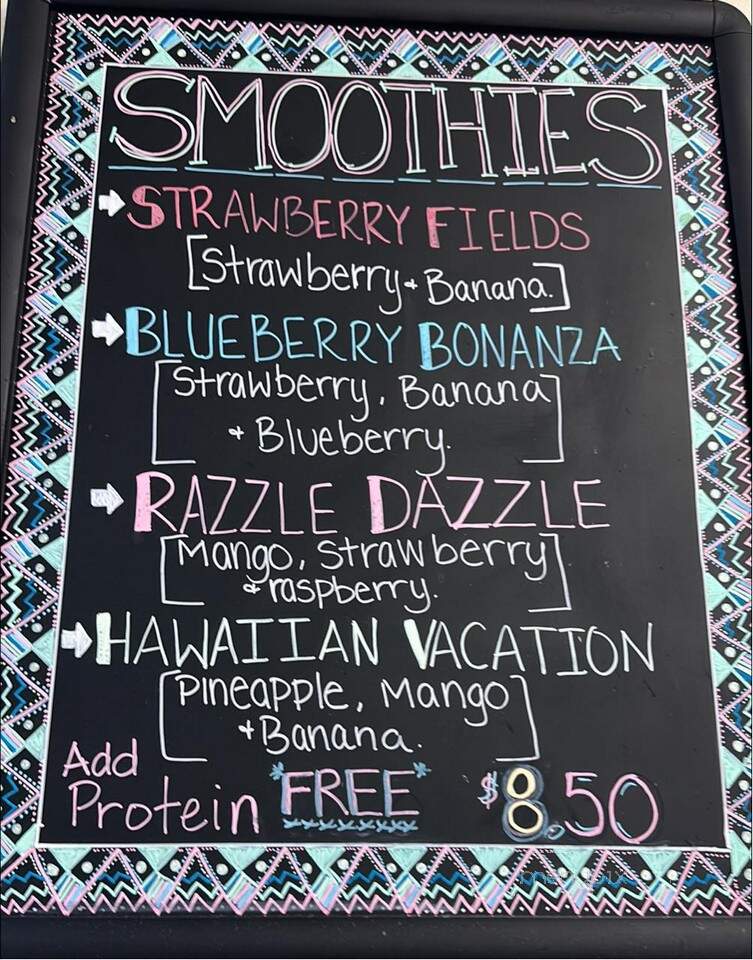 SMOOTHIES
STRAWBERRY FIELDS
[Strawberry + Banana.]
BLUEBERRY BONANZA
[Strawberry, Banana
+ Blueberry.]
RAZZLE DAZZLE
[Mango, Strawberry
& raspberry.]
HAWAIIAN VACATION
[Pineapple, Mango
+ Banana.]
Add
Protein *FREE* $8.50